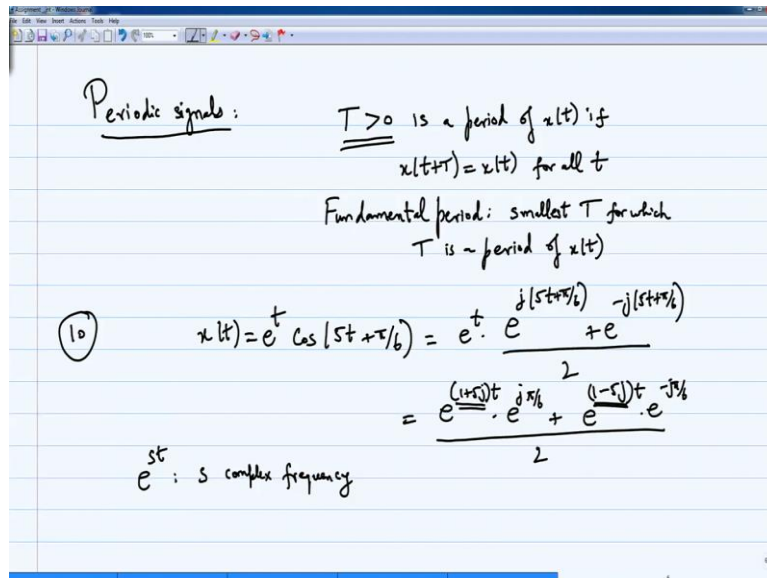 Assignment_.jnt - Windows Journal
File Edit View Insert Actions Tools Help
100%
Periodic signals:
T>0 is a period of x(t) if
x(t+T) = x(t) for all t
Fundamental period: smallest T for which
T is a period of x(t)
10 x(t) = e^t cos(5t+π/6) = e^t · (e^{j(5t+π/6)} + e^{-j(5t+π/6)}) / 2
= (e^{(1+5j)t} · e^{jπ/6} + e^{(1-5j)t} · e^{-jπ/6}) / 2
e^{st} : s complex frequency